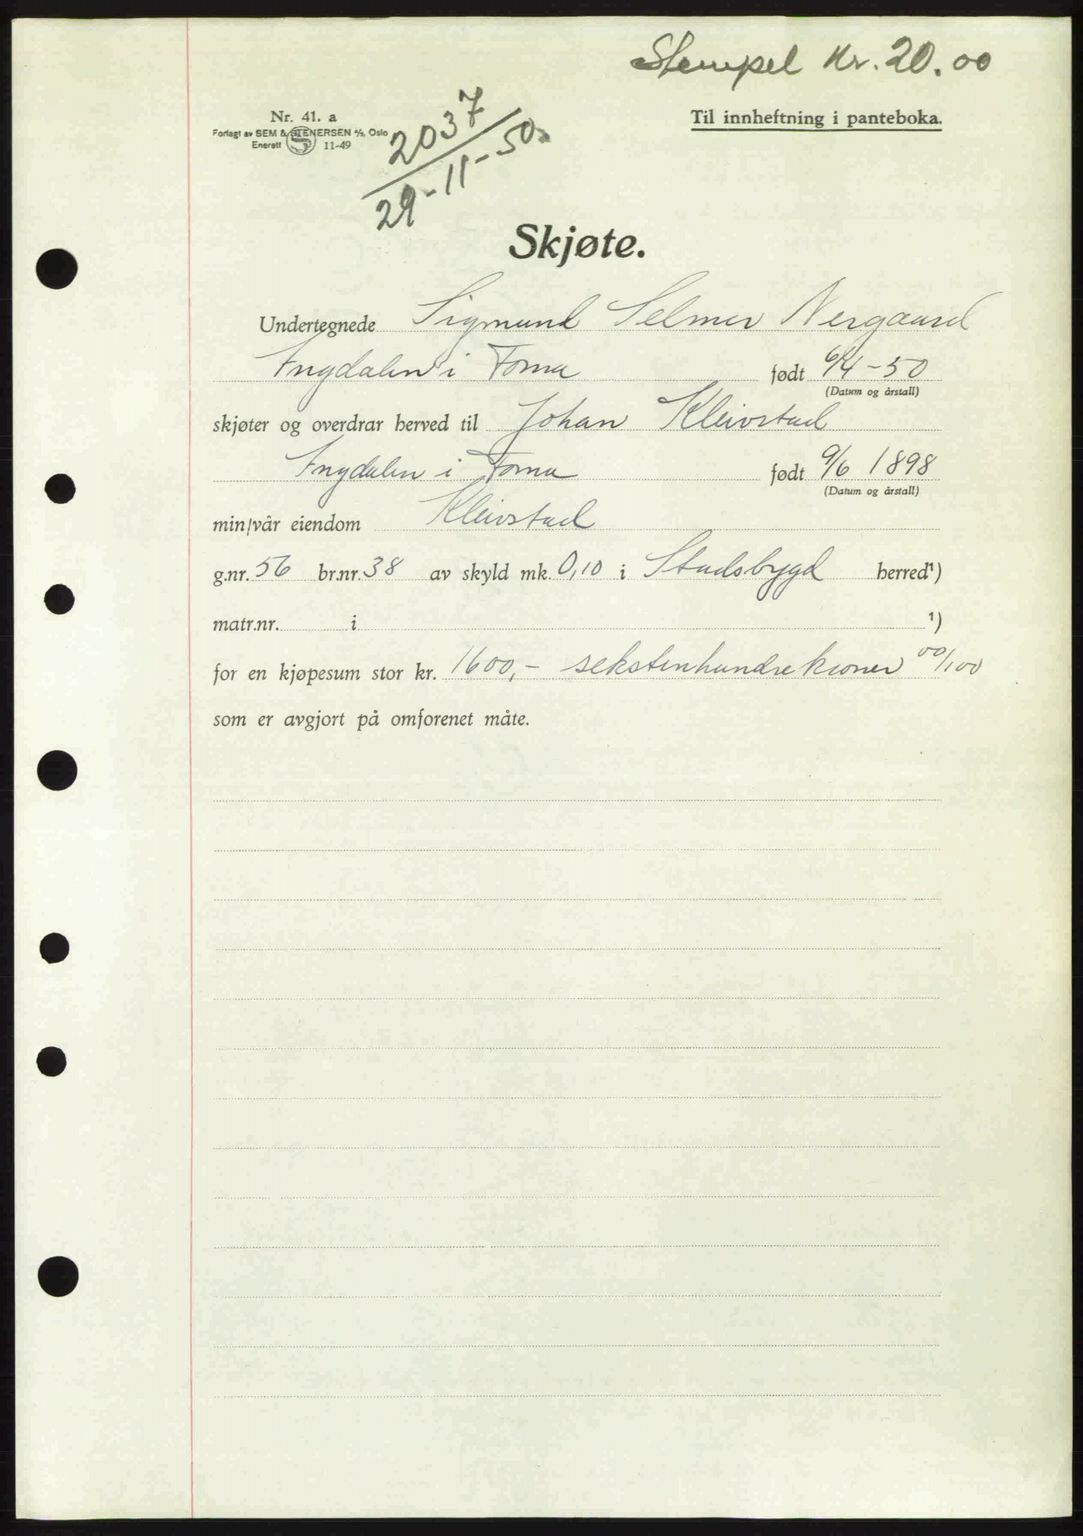 Stempel Kr. 20.00
Nr. 41. a
Forlagt av SEM & STENERSEN A/S, Oslo
Enerett 11-49
Til innheftning i panteboka.
2037
29-11-50
Skjøte.
Undertegnede Sigmund Selmer Nergaard
Ingdalen i Torna født 6/4-50
(Datum og årstall)
skjøter og overdrar herved til Johan Kleivstad
Ingdalen i født 9/6 1898
(Datum og årstall)
min/vår eiendom Kleivstad
g.nr. 56 br.nr. 38 av skyld mk. 0,10 i Stadsbygd herred¹)
matr.nr. i ¹)
for en kjøpesum stor kr. 1600,- sekstenhundrekroner 00/100
som er avgjort på omforenet måte.